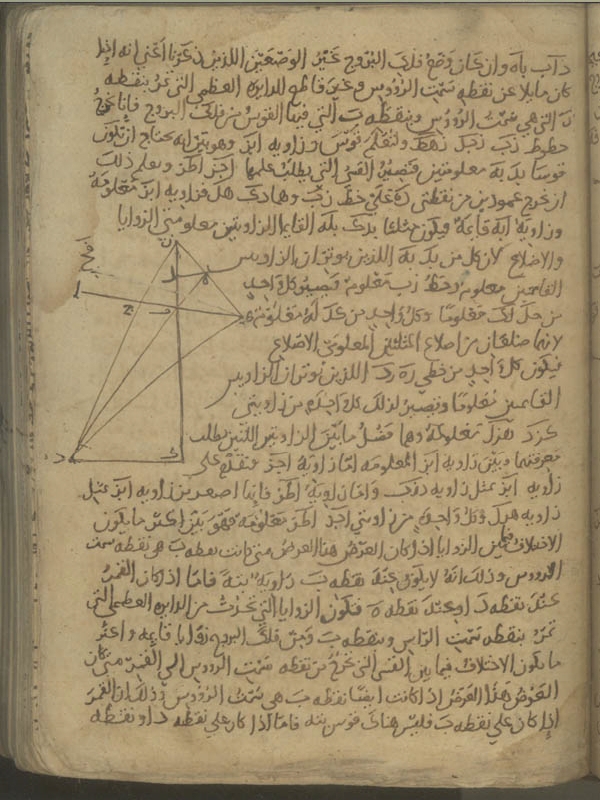 د آب باه وان كان وضع فلك البروج غير الوضعين اللذين ذكرنا اعني انه اذا
كان مايلا عن نقطه سمت الرووس وغير قاطع للدايره العظمي التي تمر بنقطه
التي هي سمت الرووس وبنقطه ب التي فيها القوس من فلك البروج فانا نخرج
خطوط زب زحل زهط ولنعلم قوس وزاويه ابز وهو بين انه يحتاج ان تكون
قوسا بد به معلومتين فتصير القسي التي يطلب علمها اجز اطز ويعلم ذلك
ان نخرج عمودين من نقطتي د ه علي خط زب وهما دك هل فزاويه ابز معلومه
وزاويه ابه قايمه ويكون مثلثا بدك بله القايما الزاويتين معلومتي الزوايا
والاضلاع لان كل من بد به اللذين يوتران الزاويتين
القايمتين معلومه وخط زب معلوم فيصير كل واحد
من حل لك معلوما وكل واحد من هل له معلومه
لانهما ضلعان من اضلاع المثلثين المعلومي الاضلاع
فيكون كل واحد من خطي زه زد اللذين يوتران الزاويتين
القايمتين معلوما وتصير لذلك كل واحده من زاويتي
كزد هزل معلومه وهما فضل ما بين الزاويتين اللتين يطلب
معرفتهما وبين زاويه ابز المعلومه اما زاويه اجز فتفضل علي
زاويه ابز بمثل زاويه دزب واما زاويه اطز فانها اصغر من زاويه ابز بمثل
زاويه هزل وكل واحده من زاويتي اجز اطز معلومه فهو بين اكثر ما يكون
الاختلاف فيما بين الزوايا اذا كان العرض هذا العرض متي كانت نقطه ب هي نقطه سمت
الرووس وذلك انه لا يكون عند نقطه ب زاويه بته فاما اذا كان القمر
عند نقطه د او عند نقطه ه فتكون الزوايا التي تحدث من الدايره العظمي التي
تمر بنقطه سمت الراس وبنقطه ب ومن فلك البروج زوايا قايمه واكثر
ما يكون الاختلاف فيما بين القسي التي تخرج من نقطه سمت الرووس الي القمر متي كان
العرض هذا العرض اذا كانت ايضا نقطه ب هي سمت الرووس وذلك ان القمر
اذا كان علي نقطه ب فليس هناك قوس بته فاما اذا كان علي نقطه د او نقطه